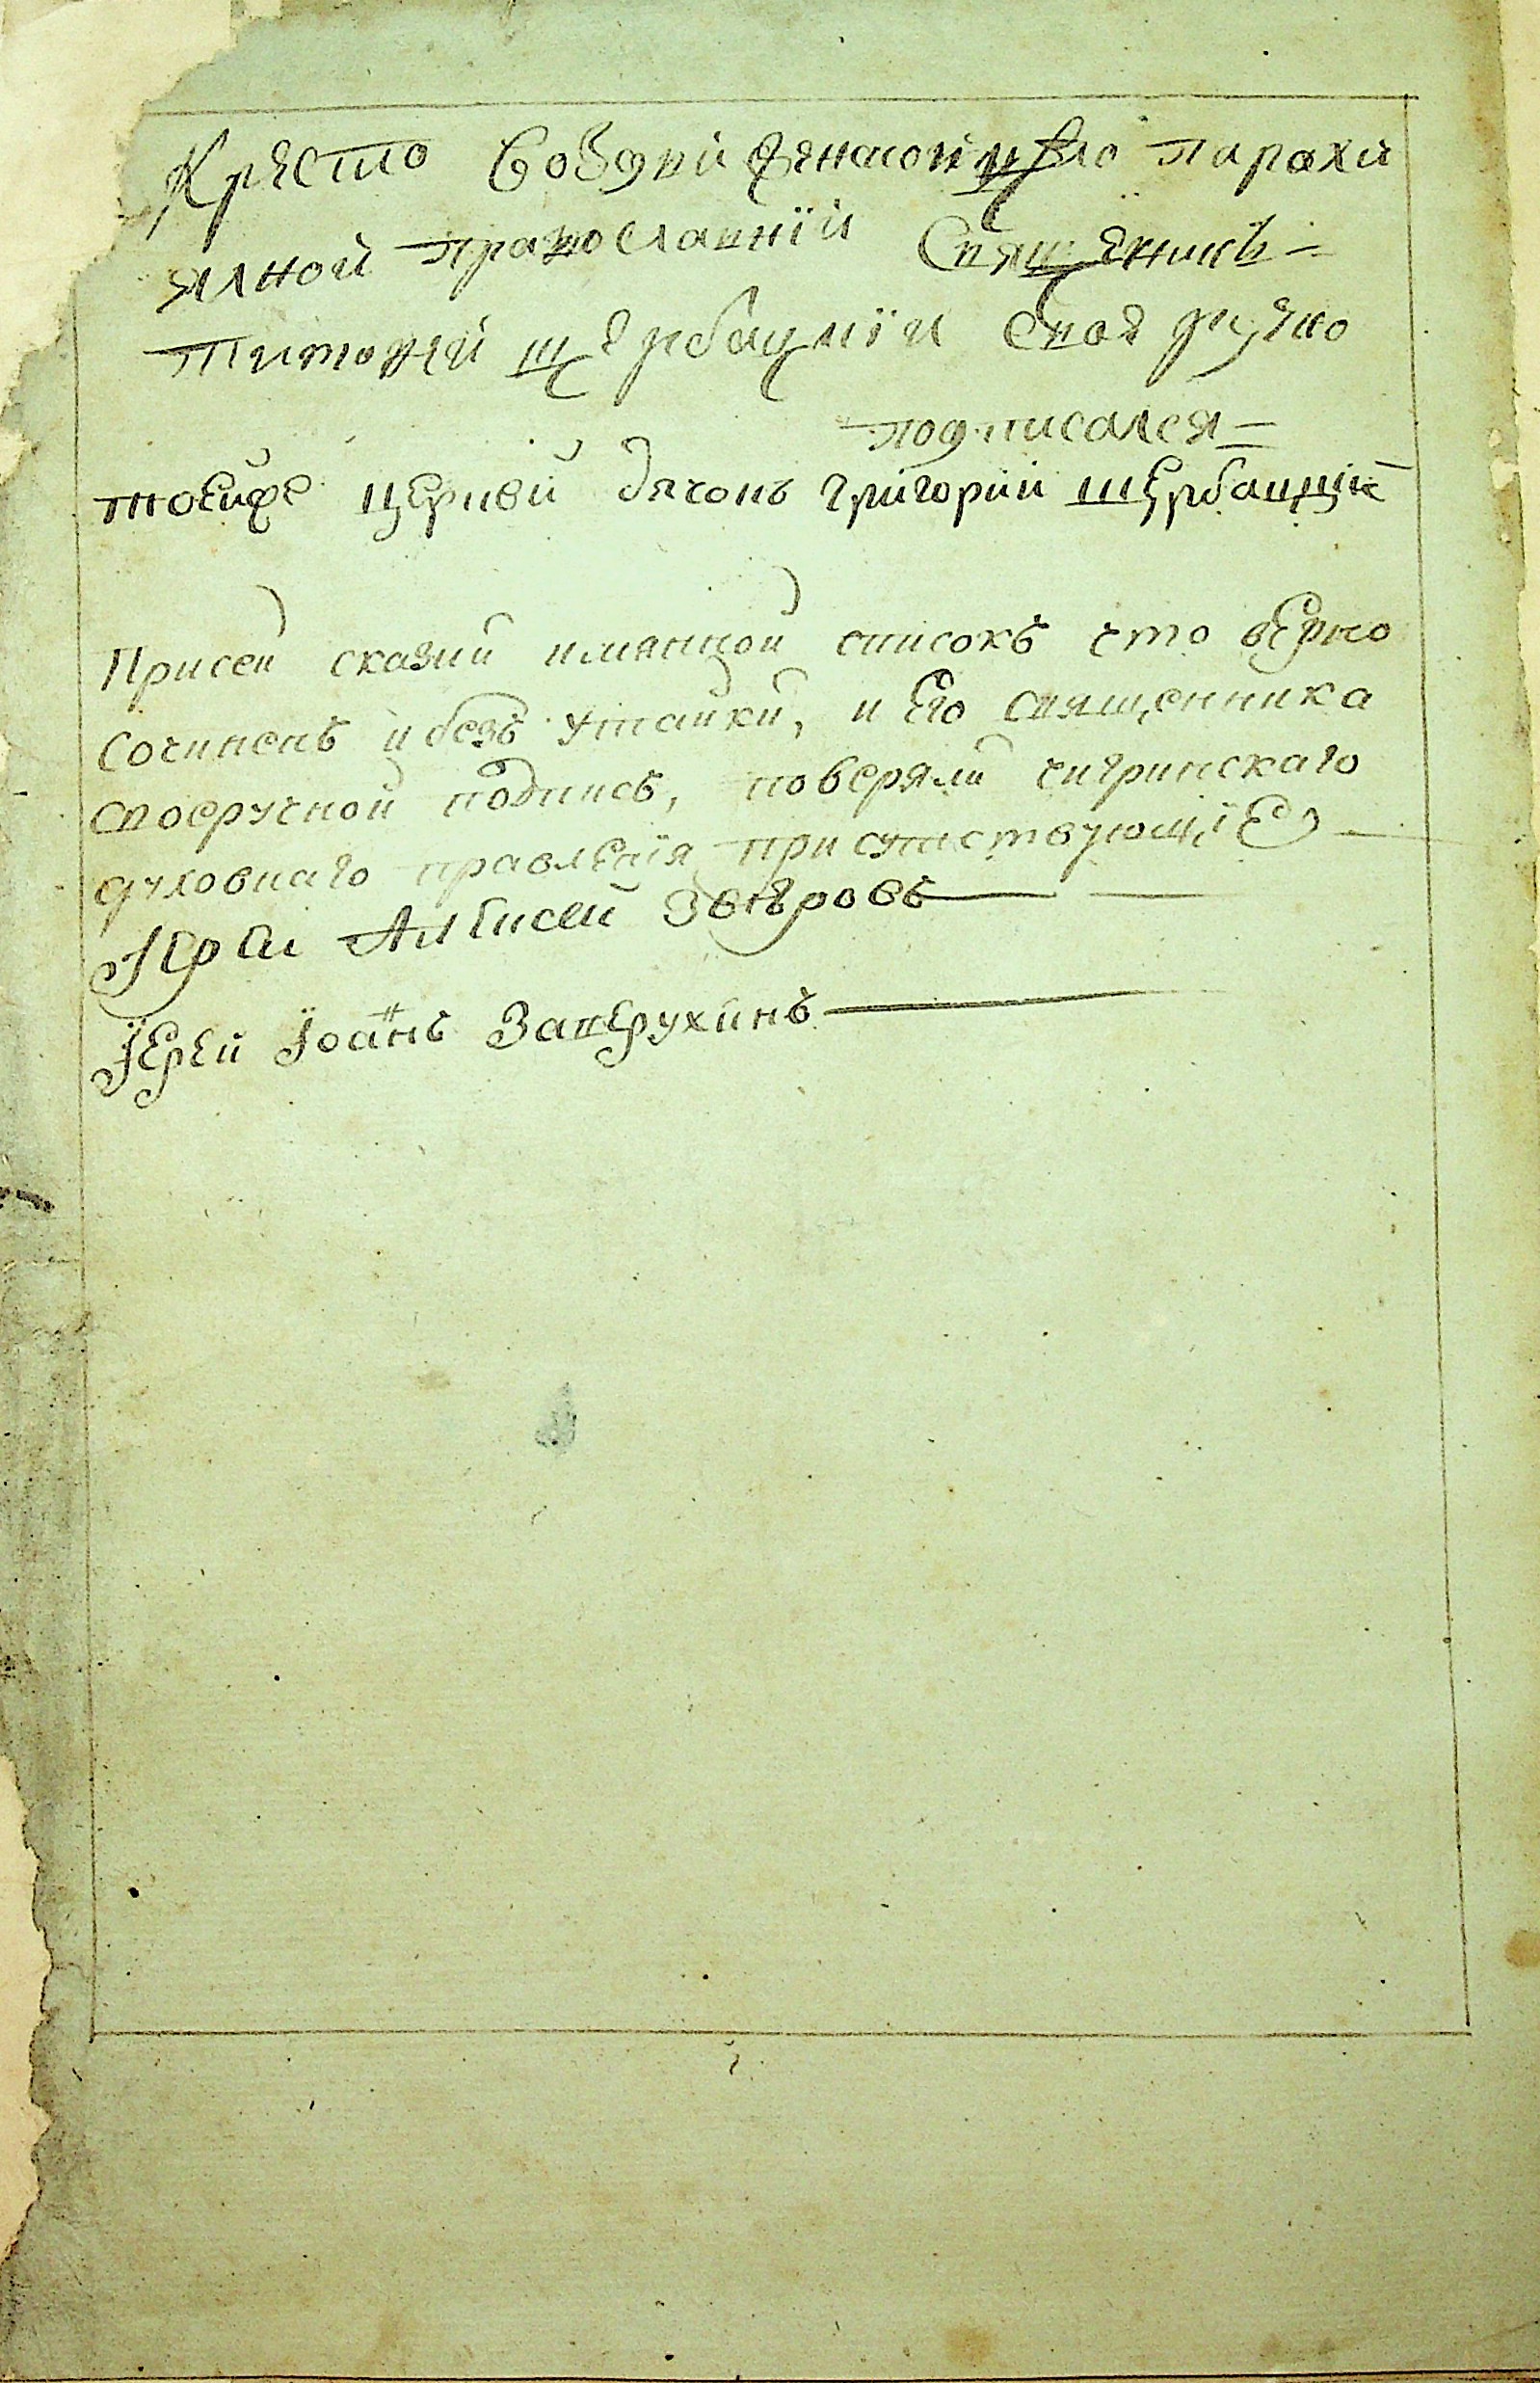 Крѧсто Воздви женской цѣло парахи
ялной православній Священикъ
Тимофей щербацкій своя рукою
подписался
тоейже церкви дячокъ григорий щербацкій
Присей сказки имянной списокъ что верно
сочиненъ и безъ утайки, и Его священника
своеручной подпись, поверяли чигринскаго
духовнаго правленїя присутствующїе
Іерей Алексей Звѣровъ
Їерей Їоанъ Заперухинъ